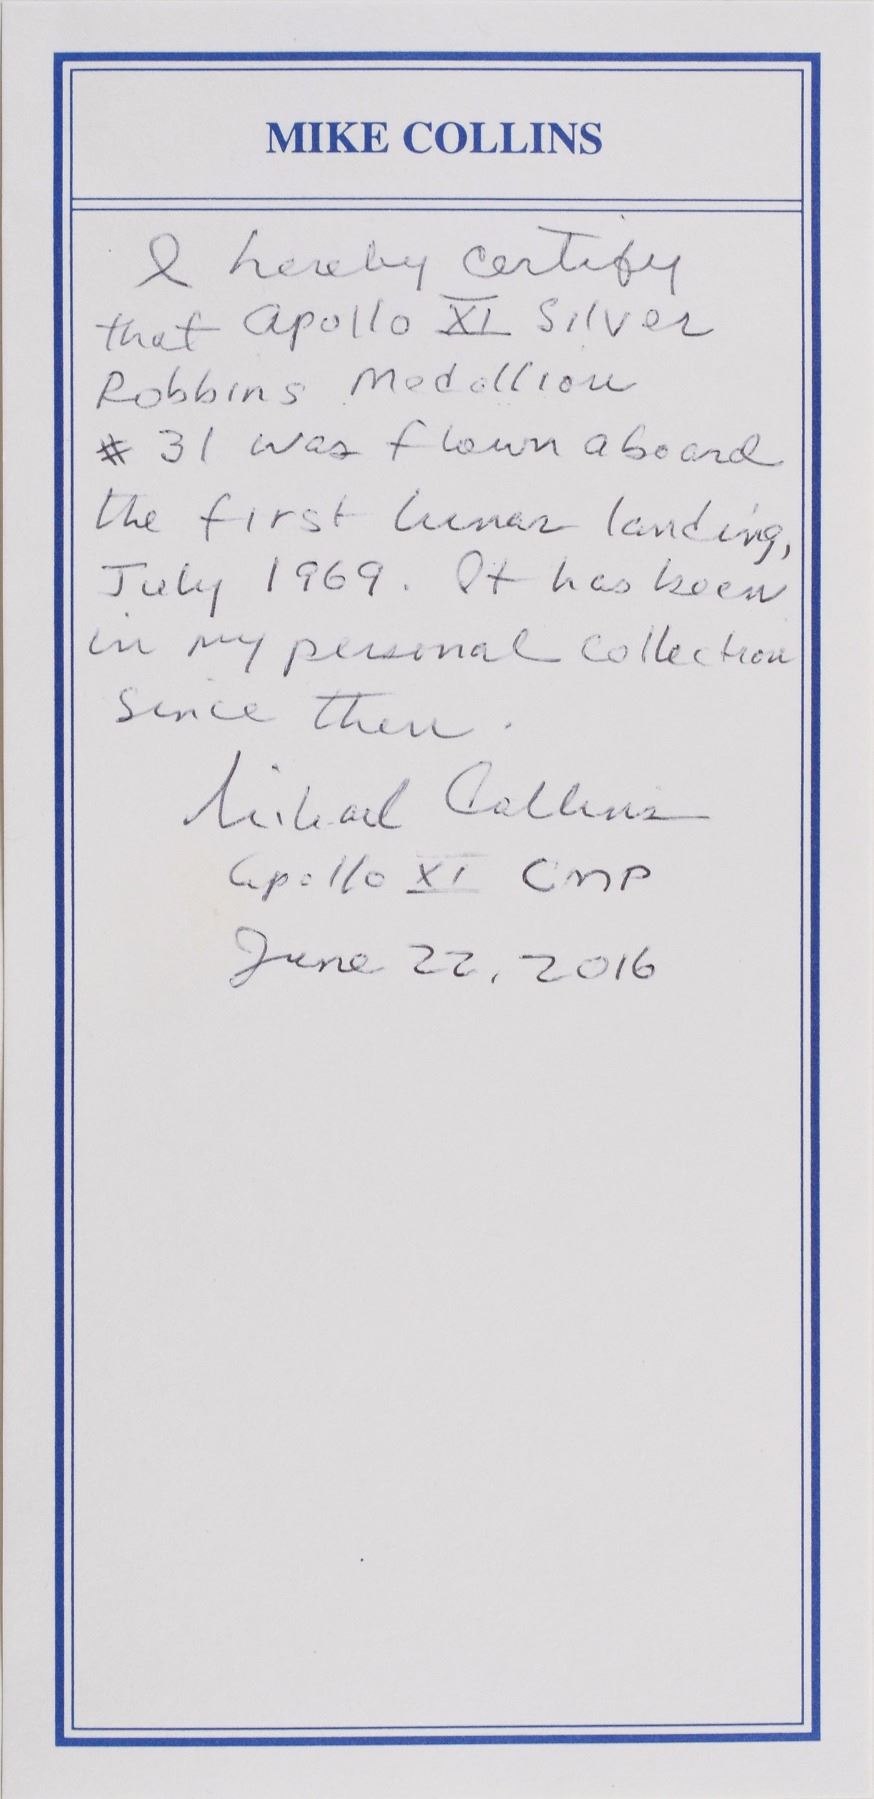 MIKE COLLINS
I hereby certify
that Apollo XI Silver
Robbins Medallion
# 31 was flown aboard
the first lunar landing,
July 1969. It has been
in my personal collection
since then.
Michael Collins
Apollo XI CMP
June 22, 2016